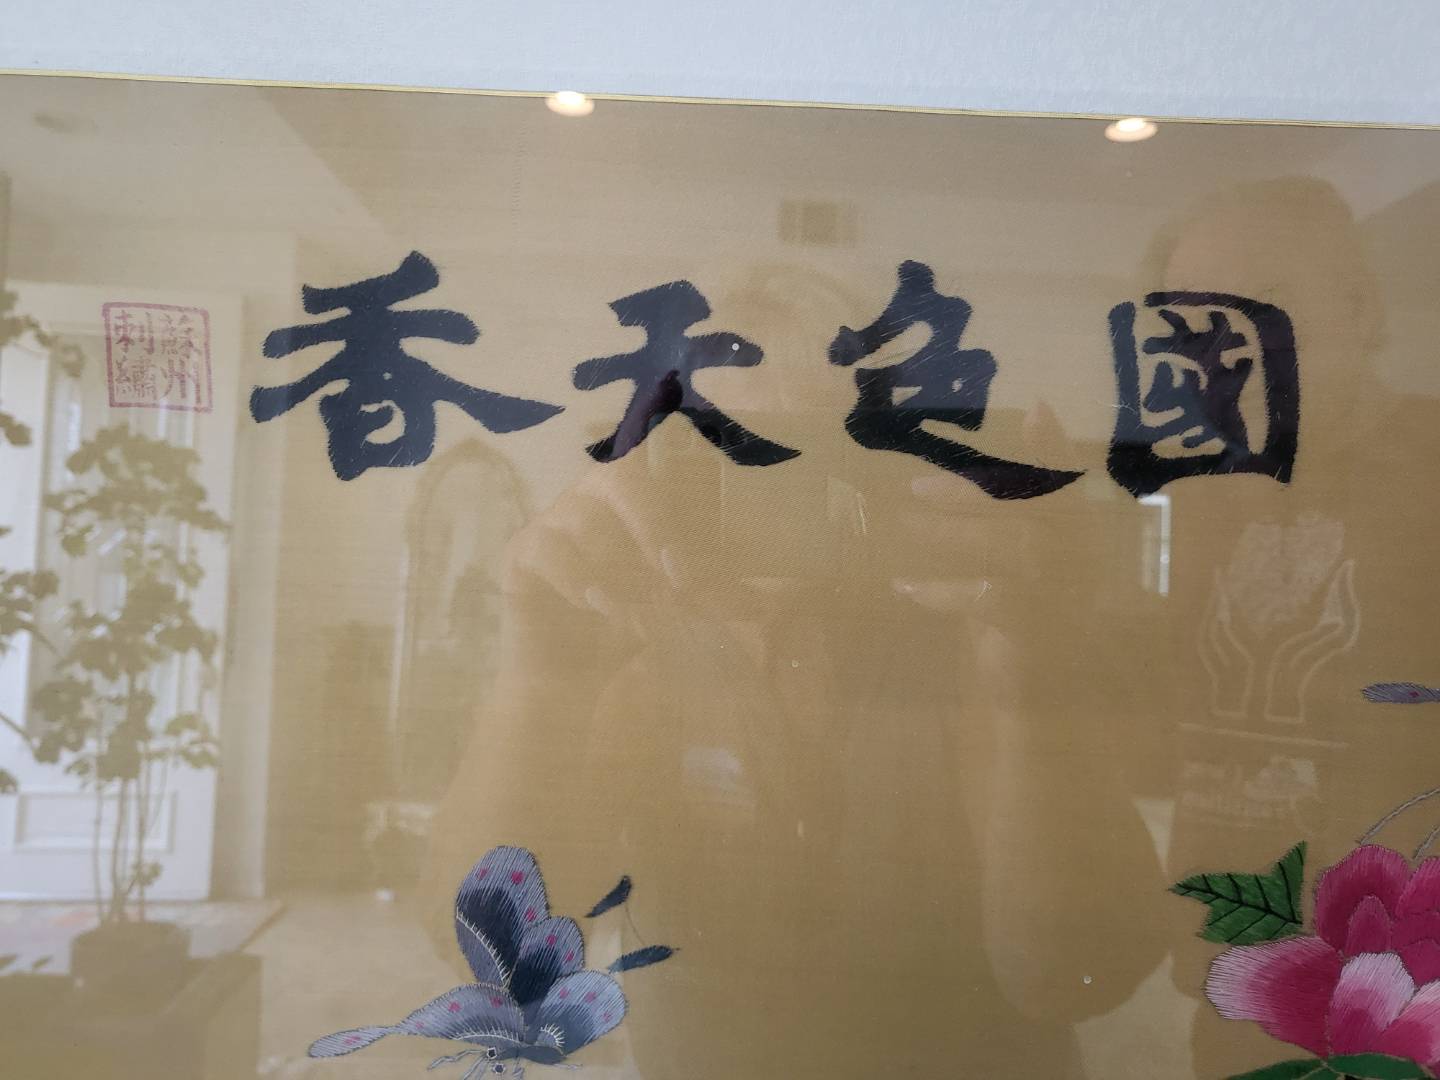 國色天香
蘇州
刺繡